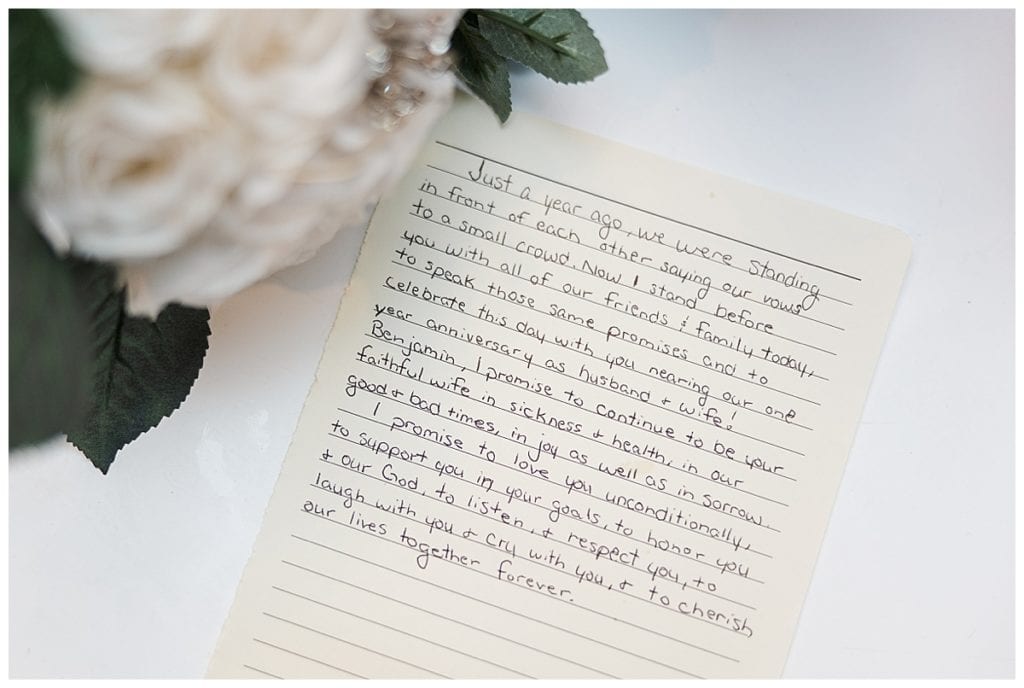 Just a year ago, we were standing
in front of each other saying our vows
to a small crowd. Now I stand before
you with all of our friends & family today,
to speak those same promises and to
celebrate this day with you nearing our one
year anniversary as husband & wife!
Benjamin, I promise to continue to be your
faithful wife in sickness & health, in our
good & bad times, in joy as well as in sorrow.
I promise to love you unconditionally,
to support you in your goals, to honor you
& our God, to listen, & respect you, to
laugh with you & cry with you, & to cherish
our lives together forever.